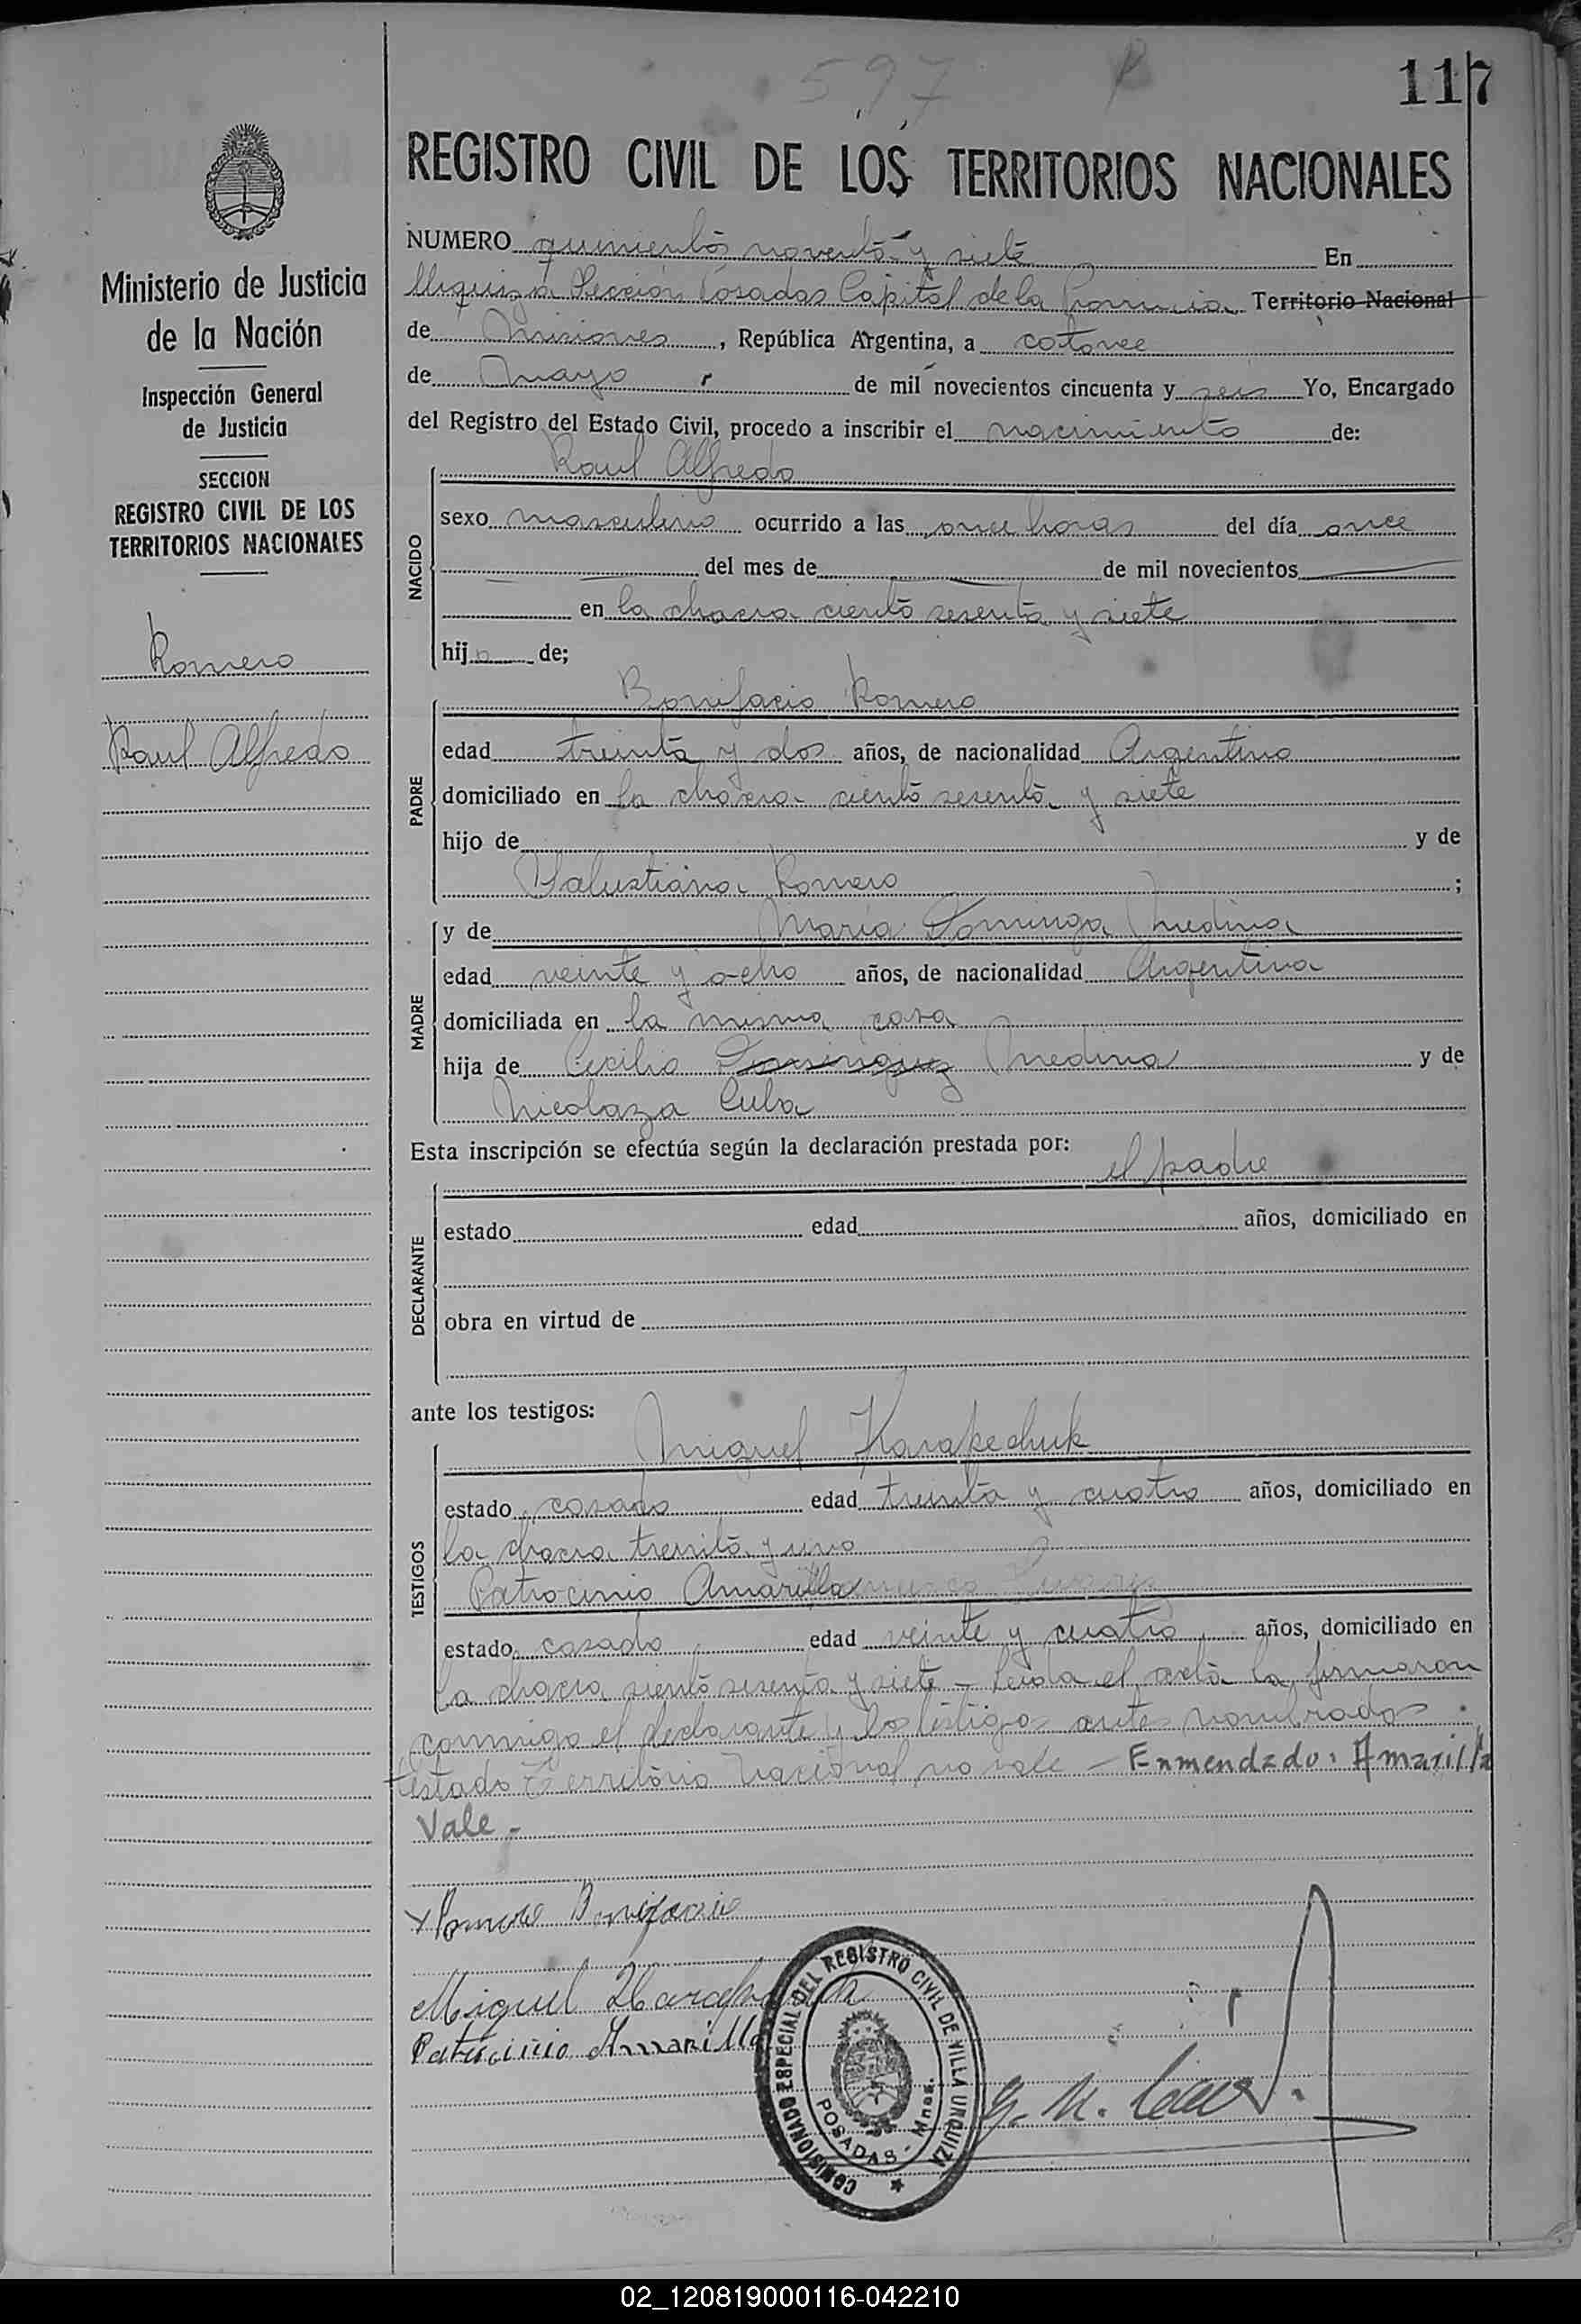 597
117
REGISTRO CIVIL DE LOS TERRITORIOS NACIONALES
Ministerio de Justicia
de la Nación
Inspección General
de Justicia
SECCION
REGISTRO CIVIL DE LOS
TERRITORIOS NACIONALES
Romero
Raul Alfredo
NUMERO quinientos noventa y siete En
Urquiza Sección Posadas Capital de la Provincia Territorio Nacional
de Misiones, República Argentina, a catorce
de Mayo de mil novecientos cincuenta y seis Yo, Encargado
del Registro del Estado Civil, procedo a inscribir el nacimiento de:
NACIDO
Raul Alfredo
sexo masculino ocurrido a las once horas del día once
del mes de de mil novecientos
en la chacra ciento sesenta y siete
hijo de;
PADRE
Bonifacio Romero
edad treinta y dos años, de nacionalidad Argentino
domiciliado en la chacra ciento sesenta y siete
hijo de y de
Salustiana Romero ;
MADRE
y de Maria Dominga Medina
edad veinte y ocho años, de nacionalidad Argentina
domiciliada en la misma casa
hija de Cecilio Dominguez Medina y de
Nicolaza Cuba
Esta inscripción se efectúa según la declaración prestada por:
el padre
DECLARANTE
estado edad años, domiciliado en
obra en virtud de
ante los testigos:
TESTIGOS
Miguel Karapechuk
estado casado edad treinta y cuatro años, domiciliado en
la chacra treinta y uno
Patrocinio Amarilla
estado casado edad veinte y cuatro años, domiciliado en
la chacra siento sesenta y siete - Leida el acta la firmaron
conmigo el declarante y los testigos antes nombrados.
testado Territorio Nacional no vale - Enmendado: Amarilla
Vale -
x Romero Bonifacio
Miguel
Patrocinio Amarilla
COMISIONADO ESPECIAL DEL REGISTRO CIVIL DE VILLA URQUIZA
POSADAS - Mnes.
02_120819000116-042210